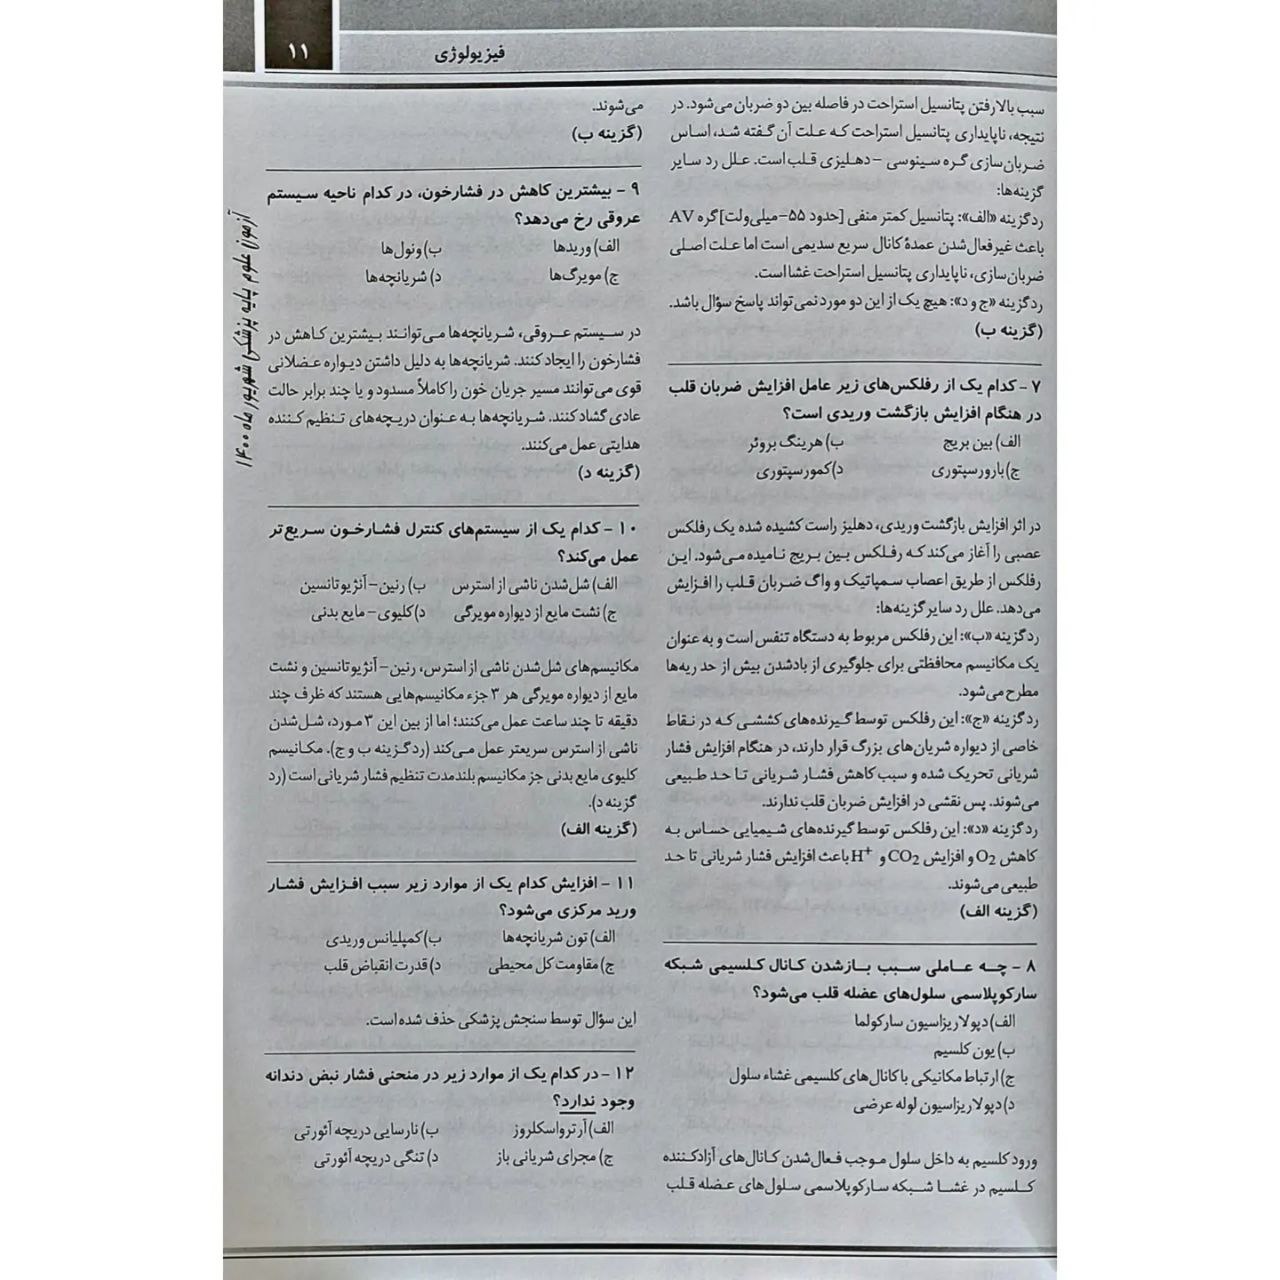 ۱۱
فیزیولوژی
سبب بالارفتن پتانسیل استراحت در فاصله بین دو ضربان می‌شود. در
نتیجه، ناپایداری پتانسیل استراحت که علت آن گفته شد، اساس
ضربان‌سازی گره سینوسی –دهلیزی قلب است. علل رد سایر
گزینه‌ها:
ردگزینه «الف»: پتانسیل کمتر منفی [حدود ۵۵–میلی‌ولت] گره AV
باعث غیرفعال‌شدن عمدهٔ کانال سریع سدیمی است اما علت اصلی
ضربان‌سازی، ناپایداری پتانسیل استراحت غشا است.
ردگزینه «ج و د»: هیچ یک از این دو مورد نمی‌تواند پاسخ سؤال باشد.
(گزینه ب)
۷ – کدام یک از رفلکس‌های زیر عامل افزایش ضربان قلب
در هنگام افزایش بازگشت وریدی است؟
الف) بین بریج ب) هرینگ بروئر
ج) بارورسپتوری د) کمورسپتوری
در اثر افزایش بازگشت وریدی، دهلیز راست کشیده شده یک رفلکس
عصبی را آغاز می‌کند که رفلکس بین بریج نامیده می‌شود. این
رفلکس از طریق اعصاب سمپاتیک و واگ ضربان قلب را افزایش
می‌دهد. علل رد سایر گزینه‌ها:
ردگزینه «ب»: این رفلکس مربوط به دستگاه تنفس است و به عنوان
یک مکانیسم محافظتی برای جلوگیری از بادشدن بیش از حد ریه‌ها
مطرح می‌شود.
ردگزینه «ج»: این رفلکس توسط گیرنده‌های کششی که در نقاط
خاصی از دیواره شریان‌های بزرگ قرار دارند، در هنگام افزایش فشار
شریانی تحریک شده و سبب کاهش فشار شریانی تا حد طبیعی
می‌شوند. پس نقشی در افزایش ضربان قلب ندارند.
ردگزینه «د»: این رفلکس توسط گیرنده‌های شیمیایی حساس به
کاهش O2 و افزایش CO2 و H+ باعث افزایش فشار شریانی تا حد
طبیعی می‌شوند.
(گزینه الف)
۸ – چه عاملی سبب بازشدن کانال کلسیمی شبکه
سارکوپلاسمی سلول‌های عضله قلب می‌شود؟
الف) دپولاریزاسیون سارکولما
ب) یون کلسیم
ج) ارتباط مکانیکی با کانال‌های کلسیمی غشاء سلول
د) دپولاریزاسیون لوله عرضی
ورود کلسیم به داخل سلول موجب فعال‌شدن کانال‌های آزادکننده
کلسیم در غشا شبکه سارکوپلاسمی سلول‌های عضله قلب
می‌شوند.
(گزینه ب)
۹ – بیشترین کاهش در فشارخون، در کدام ناحیه سیستم
عروقی رخ می‌دهد؟
الف) وریدها ب) ونول‌ها
ج) مویرگ‌ها د) شریانچه‌ها
در سیستم عروقی، شریانچه‌ها می‌توانند بیشترین کاهش در
فشارخون را ایجاد کنند. شریانچه‌ها به دلیل داشتن دیواره عضلانی
قوی می‌توانند مسیر جریان خون را کاملاً مسدود و یا چند برابر حالت
عادی گشاد کنند. شریانچه‌ها به عنوان دریچه‌های تنظیم کننده
هدایتی عمل می‌کنند.
(گزینه د)
۱۰ – کدام یک از سیستم‌های کنترل فشارخون سریع‌تر
عمل می‌کند؟
الف) شل‌شدن ناشی از استرس ب) رنین– آنژیوتانسین
ج) نشت مایع از دیواره مویرگی د) کلیوی– مایع بدنی
مکانیسم‌های شل‌شدن ناشی از استرس، رنین– آنژیوتانسین و نشت
مایع از دیواره مویرگی هر ۳ جزء مکانیسم‌هایی هستند که ظرف چند
دقیقه تا چند ساعت عمل می‌کنند؛ اما از بین این ۳ مورد، شل‌شدن
ناشی از استرس سریعتر عمل می‌کند (ردگزینه ب و ج). مکانیسم
کلیوی مایع بدنی جز مکانیسم بلندمدت تنظیم فشار شریانی است (رد
گزینه د).
(گزینه الف)
۱۱ – افزایش کدام یک از موارد زیر سبب افزایش فشار
ورید مرکزی می‌شود؟
الف) تون شریانچه‌ها ب) کمپلیانس وریدی
ج) مقاومت کل محیطی د) قدرت انقباض قلب
این سؤال توسط سنجش پزشکی حذف شده است.
۱۲ – در کدام یک از موارد زیر در منحنی فشار نبض دندانه
وجود ندارد؟
الف) آرترواسکلروز ب) نارسایی دریچه آئورتی
ج) مجرای شریانی باز د) تنگی دریچه آئورتی
آزمون علوم پایه پزشکی شهریور ماه ۱۴۰۰